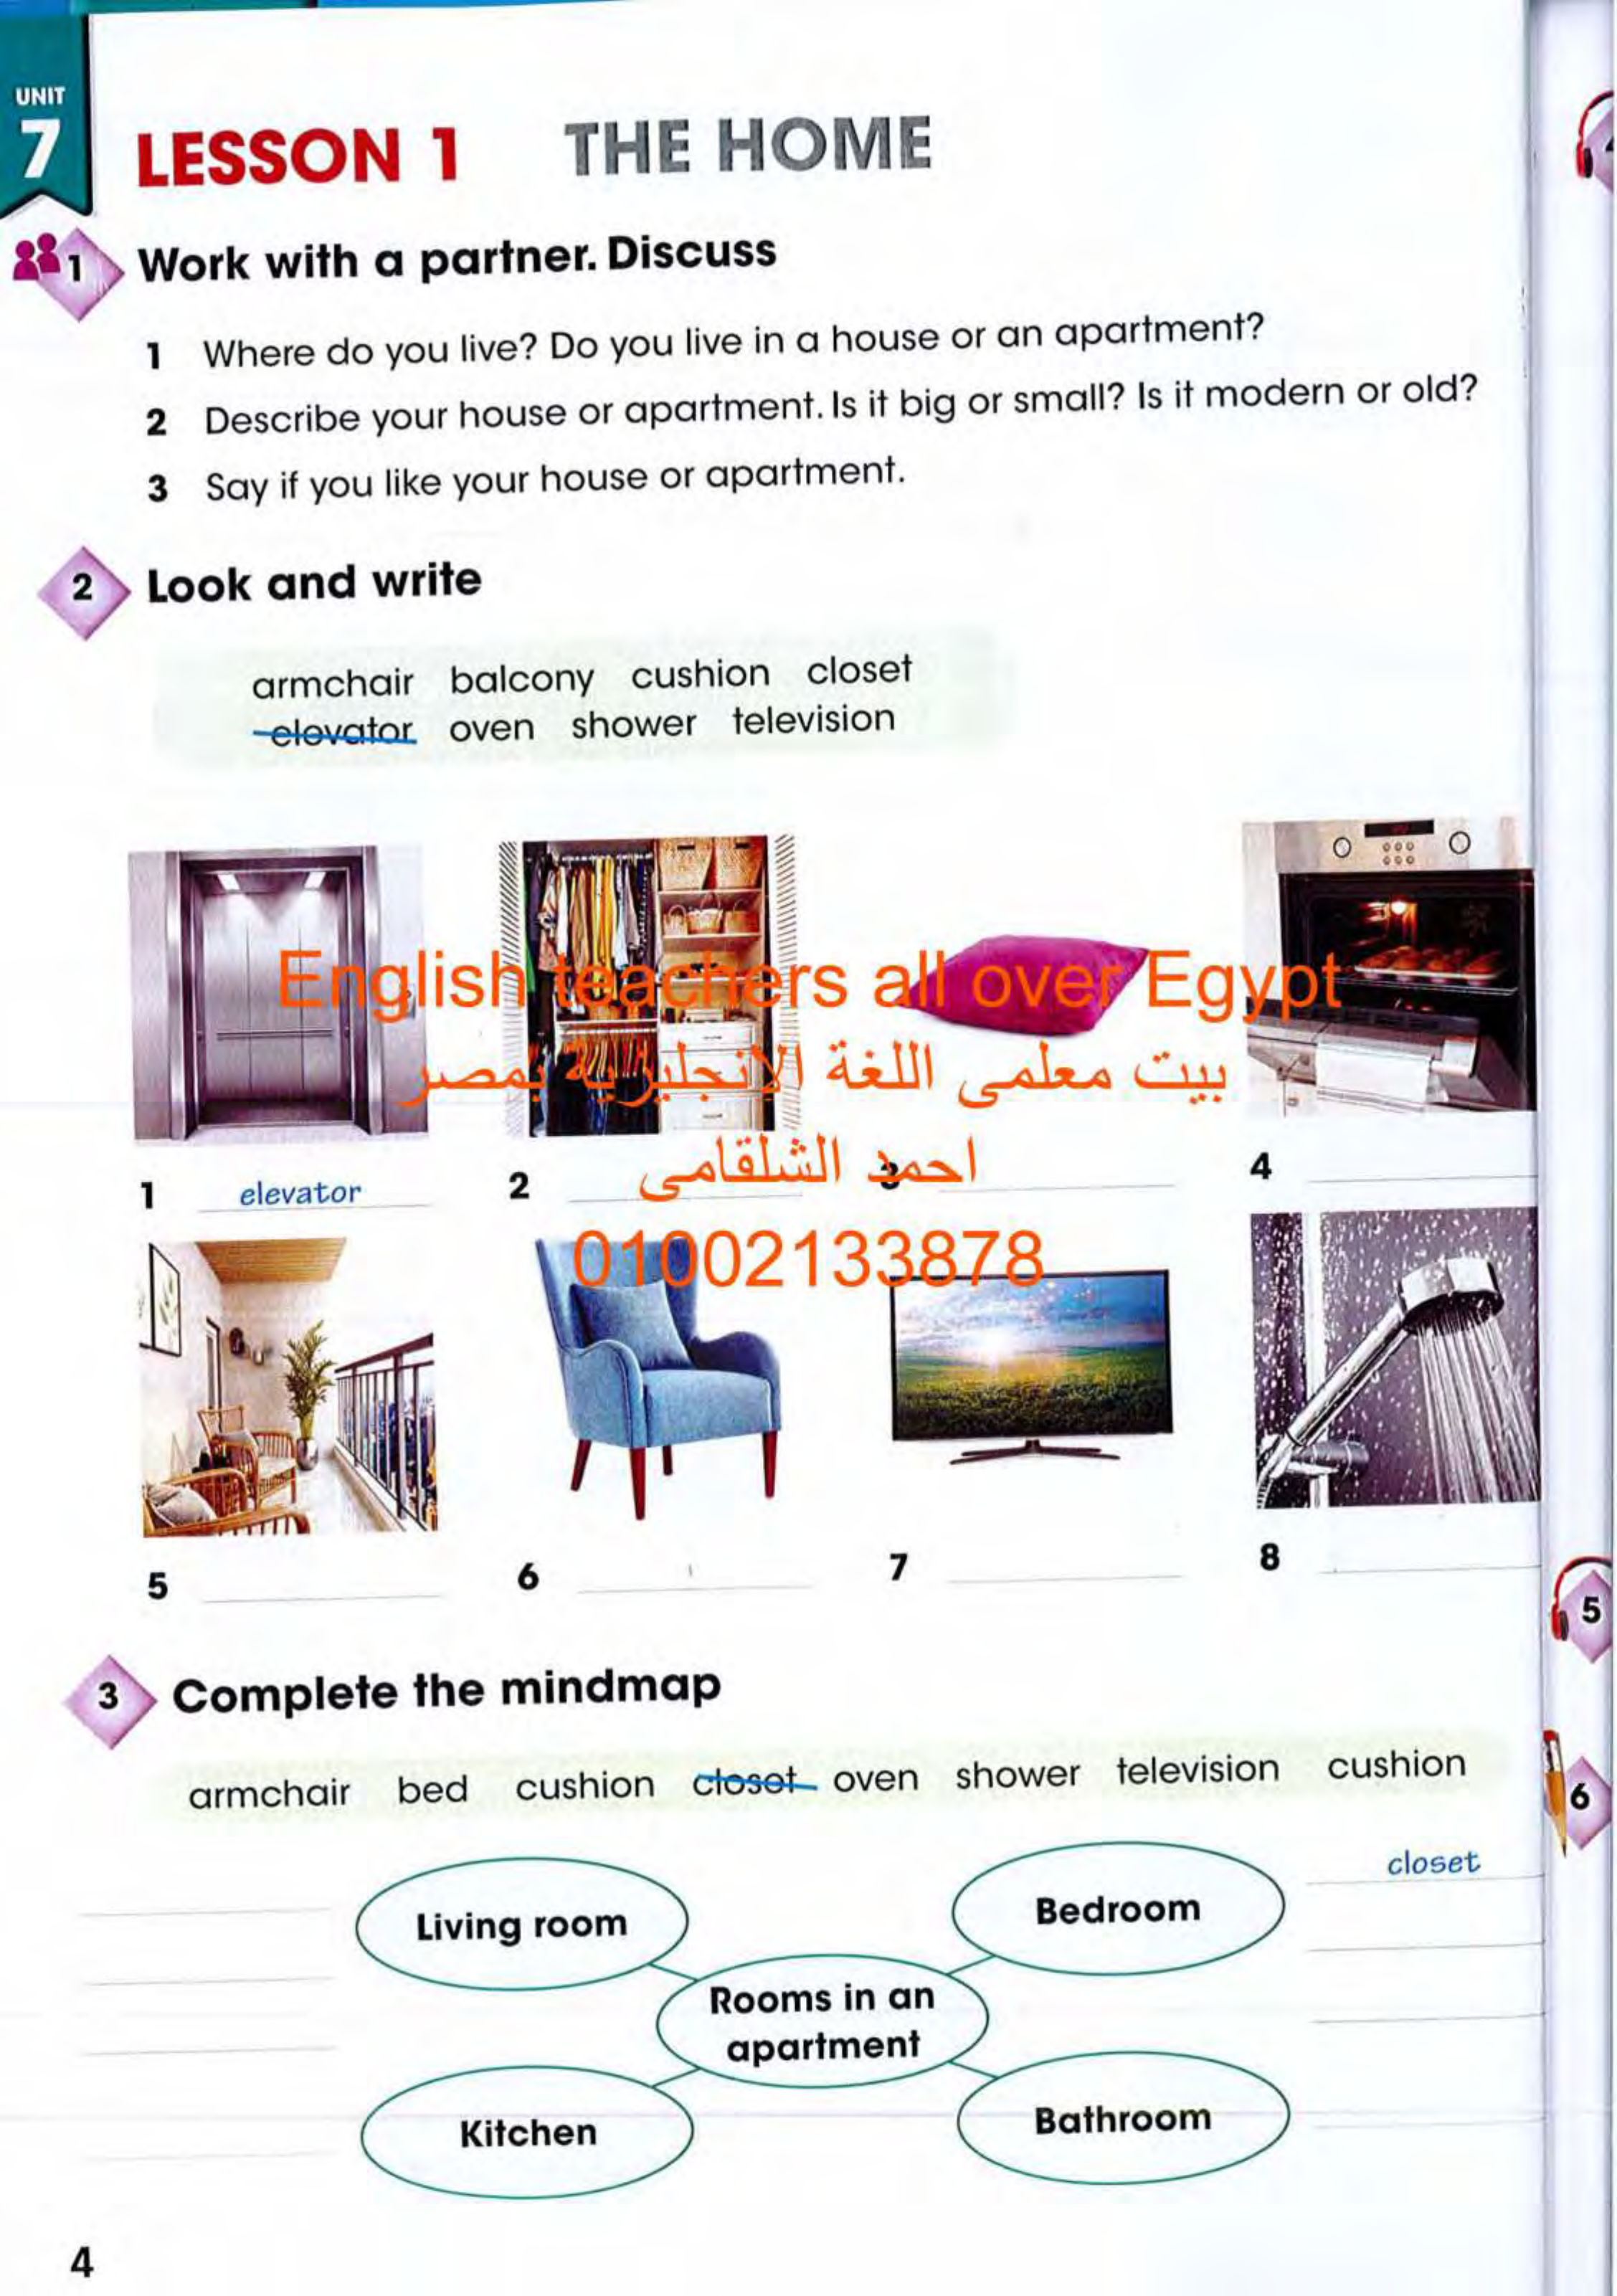 UNIT
7
LESSON 1 THE HOME
1 Work with a partner. Discuss
1 Where do you live? Do you live in a house or an apartment?
2 Describe your house or apartment. Is it big or small? Is it modern or old?
3 Say if you like your house or apartment.
2 Look and write
armchair balcony cushion closet
elevator oven shower television
English teachers all over Egypt
بيت معلمى اللغة الإنجليزية بمصر
احمد الشلقامى
01002133878
1 elevator 2 3 4
5 6 7 8
5
3 Complete the mindmap
armchair bed cushion closet oven shower television cushion
6
closet
Living room Bedroom
Rooms in an
apartment
Kitchen Bathroom
4